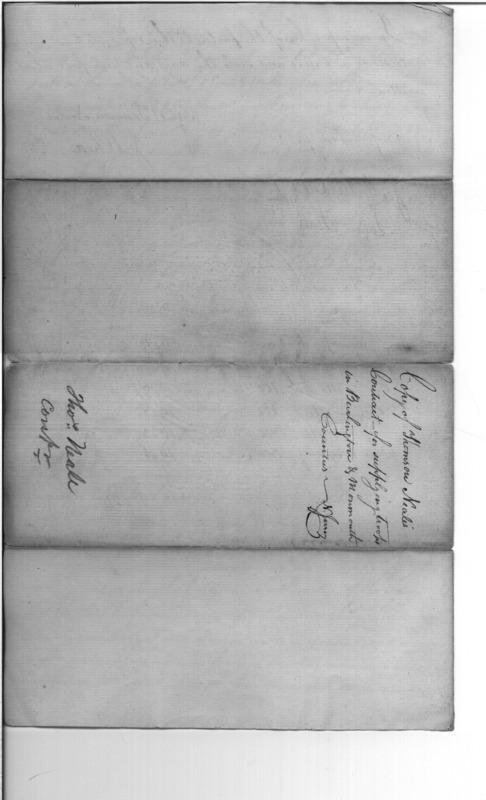 Copy of Thomson Neale's
Contract for supplying troops
in Burlington & Monmouth
Counties N Jersey
Thos. Neale
Contr